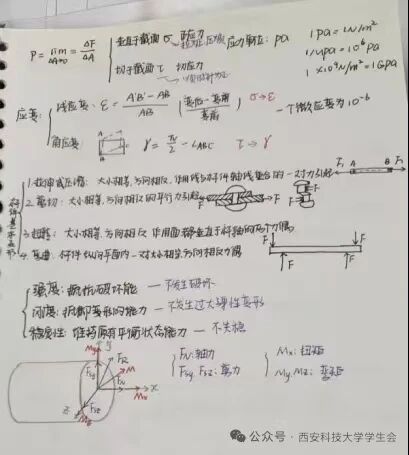 P = lim ΔA→0 ΔF/ΔA
垂直于截面 σ 正应力
应力单位: pa
1pa = 1N/m²
1Mpa = 10⁶pa
切于截面 τ 切应力
1×10⁹N/m² = 1Gpa
应变:
线应变: ε = A'B' - AB / AB
σ→ε
一个微应变为10⁻⁶
角应变:
γ = π/2 - ∠ABC
τ→γ
杆件基本变形
1. 拉伸或压缩: 大小相等、方向相反、作用线与杆件轴线重合的一对力引起
2. 剪切: 大小相等、方向相反的平行力引起
3. 扭转: 大小相等、方向相反、作用面都垂直于杆轴的两个力偶
4. 弯曲: 杆件纵向平面内一对大小相等方向相反力偶
A B F₁
F F
F F F F
强度: 抵抗破坏能 — 不发生破坏
刚度: 抵抗变形的能力 — 不发生过大弹性变形
稳定性: 维持原有平衡状态能力 — 不失稳
My y FR
Fsy M
FN x
Mx
z Fsz
Mz
FN: 轴力
Fsy, Fsz: 剪力
Mx: 扭矩
My, Mz: 弯矩
公众号 · 西安科技大学学生会